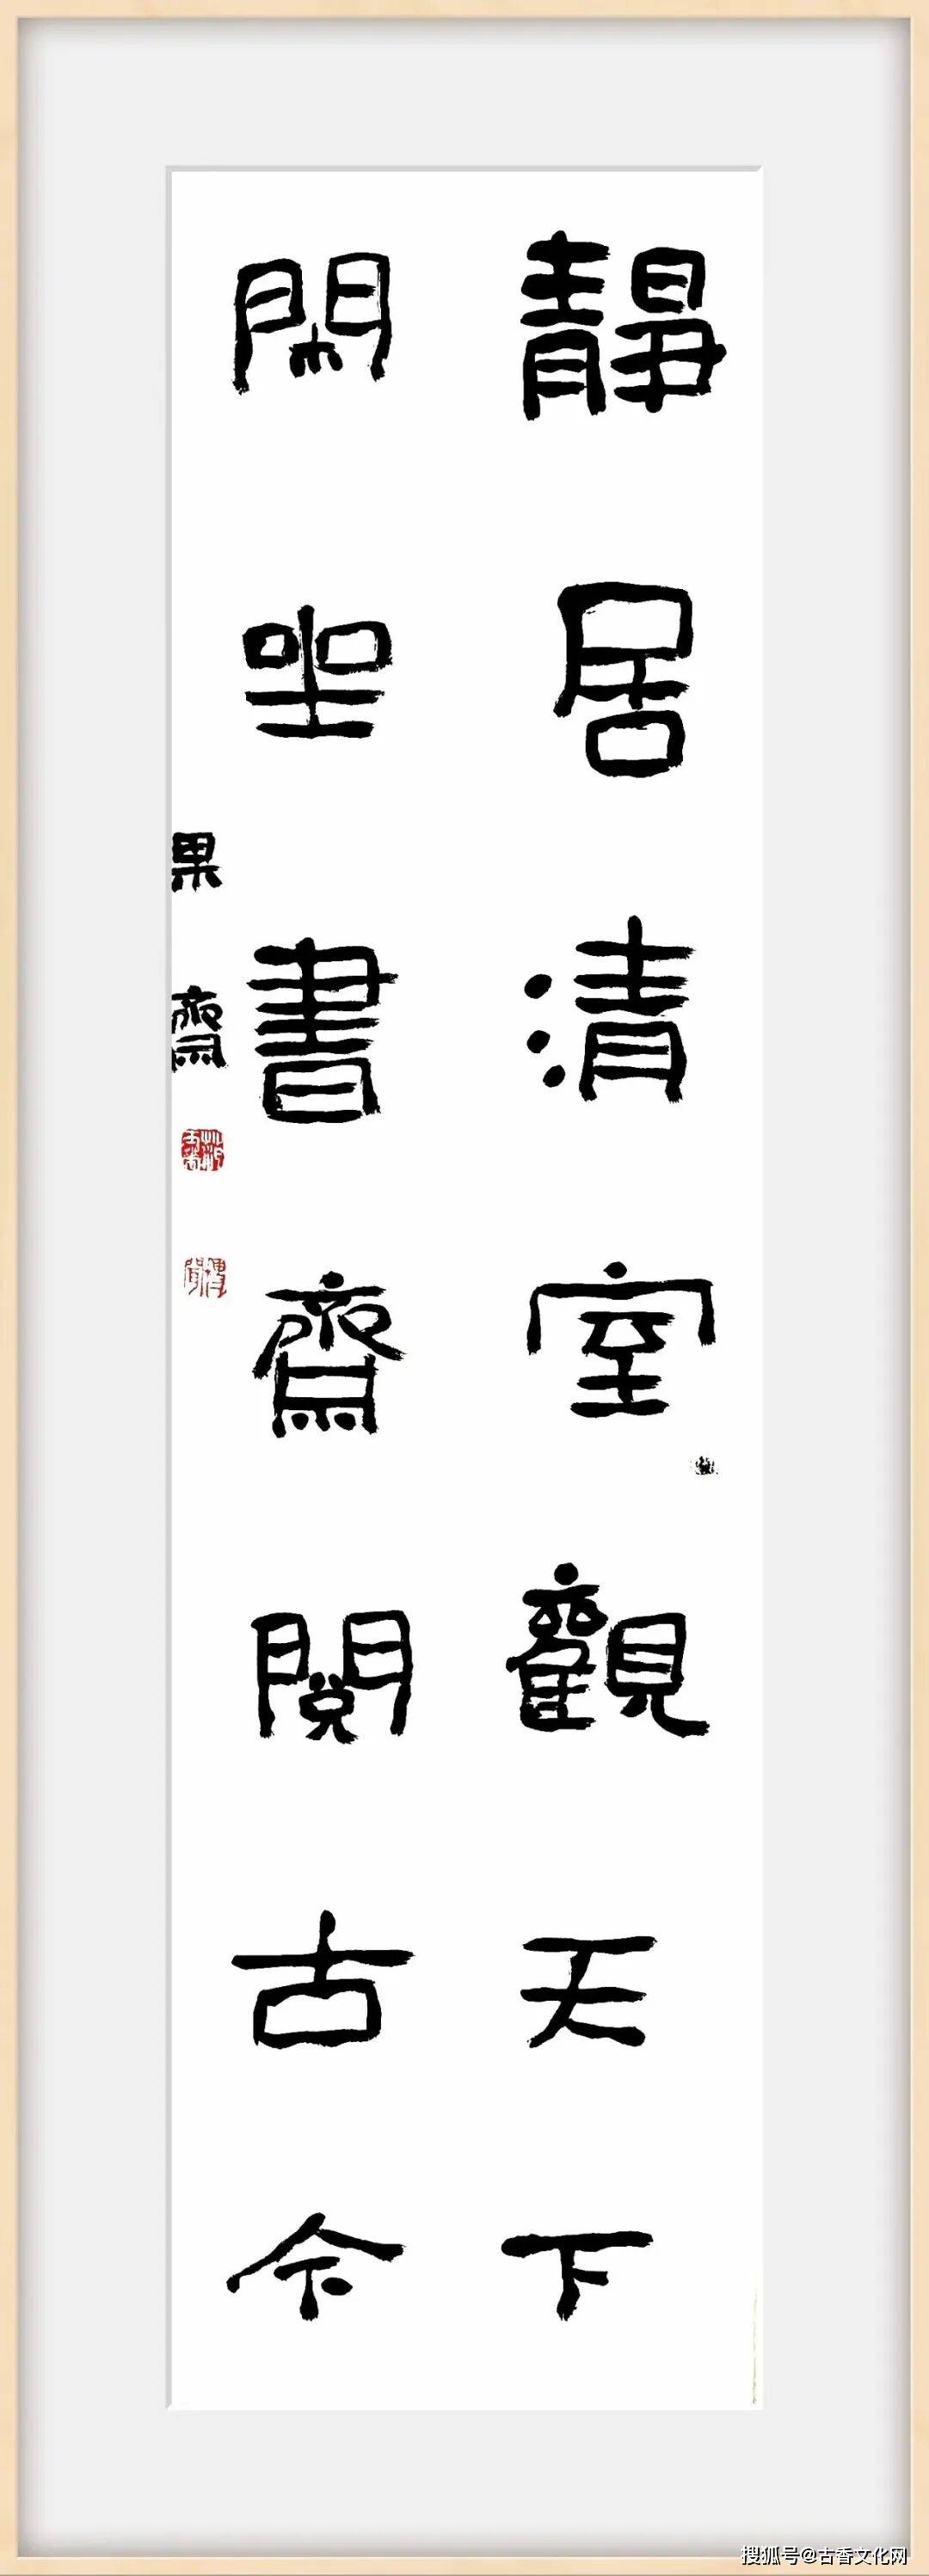 靜居清室觀天下
閑坐書齋閱古今
果齋
搜狐号@古香文化网